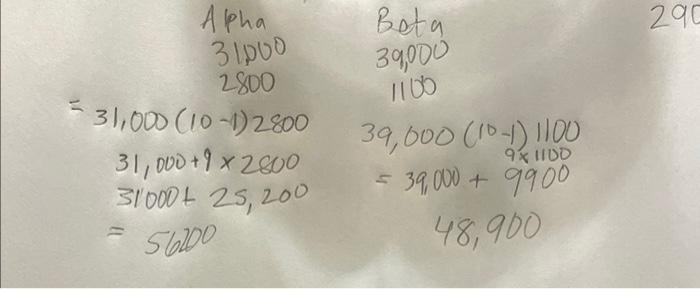 Alpha
31,000
2800
= 31,000 (10-1) 2800
31,000 + 9 x 2800
31000 + 25,200
= 56200
Beta
39,000
1100
39,000 (10-1) 1100
9 x 1100
= 39,000 + 9900
48,900